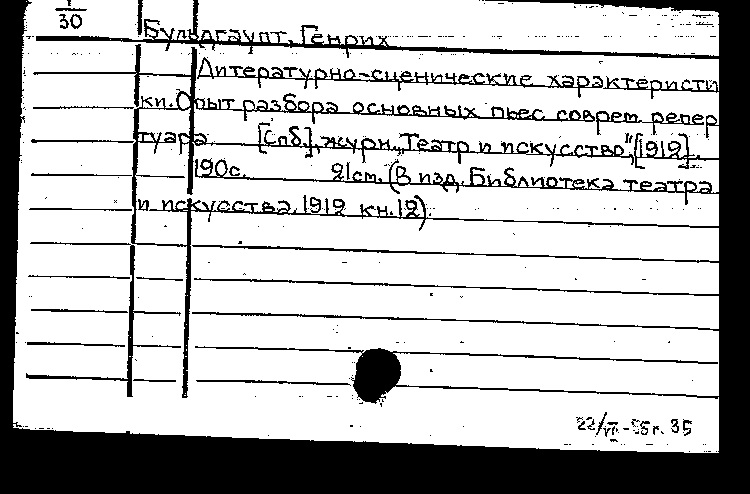 1/30
Бульдгаупт, Генрих
Литературно-сценические характеристи
ки. Опыт разбора основных пьес соврем. репер
туара. [Спб.], журн. „Театр и искусство", [1912].
190с. 21см. (В изд. Библиотека театра
и искусства. 1912 кн. 12).
22/VI-55г. 35